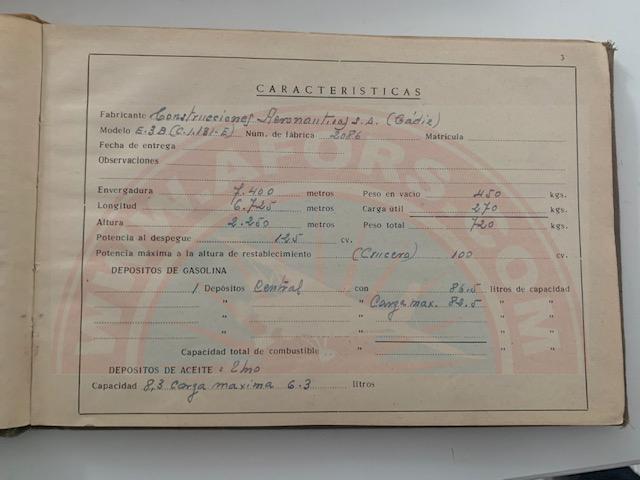 3
CARACTERISTICAS
Fabricante Construcciones Aeronauticas S.A. (Cádiz)
Modelo E.3B (C.1.131-E) Núm. de fábrica 2086 Matrícula
Fecha de entrega
Observaciones
Envergadura 7.400 metros Peso en vacío 450 kgs.
Longitud 6.725 metros Carga útil 270 kgs.
Altura 2.250 metros Peso total 720 kgs.
Potencia al despegue 125 cv.
Potencia máxima a la altura de restablecimiento (Crucero) 100 cv.
DEPOSITOS DE GASOLINA
1 Depósitos Central con 86.5 litros de capacidad
" " Carga max. 82.5 " "
" " " "
" " " "
Capacidad total de combustible " "
DEPOSITOS DE ACEITE: Uno
Capacidad 8,3 Carga maxima 6.3 litros
WWW.AFORS.COM